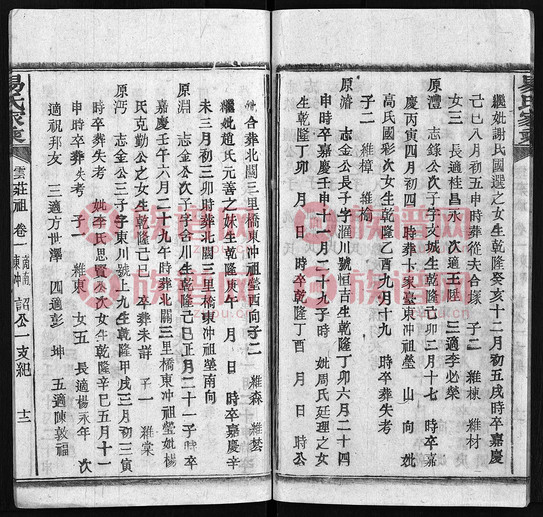 繼妣謝氏國選之女生乾隆癸亥十二月初五戌時卒嘉慶
己巳八月初五申時葬從夫合塚 子二 維棟 維材
女三 長適桂昌永 次適王陞 三適李必榮
原澧 志錄公次子字亥城生乾隆己卯二月十七 時卒嘉
慶丙寅四月初四 時葬卞家臺東冲祖瑩 山 向 妣
高氏國彩次女生乾隆乙酉九月十九 時卒葬失考
子二 維樟 維
原濟 志金公長子字 川號恒吉生乾隆丁卯六月二十四
申時卒嘉慶壬申十二月二九子時 妣周氏廷理之女
生乾隆丁卯 月 日 時卒乾隆丁酉 月 日 時公
合葬北關三里橋東冲祖瑩西向子二 維森 維
繼妣趙氏元善之妹生乾隆庚午 月 日 時卒嘉慶辛
未三月初三卯時葬北關三里橋東冲祖瑩南向
原淵 志金公次子字合川生乾隆己巳正月二十一子時卒
嘉慶壬午六月二十九午時葬北關三里橋東冲祖瑩妣楊
氏克勤公之女生乾隆己巳 卒葬未詳 子一 維棠
原沔 志金公三子字東川號 九生乾隆甲戌三月初三寅
時卒葬失考 妣李氏思置公次女生乾隆辛巳五月十一
申時卒葬失考 子一 維東 女五 長適楊永年 次
適祝邦友 三適方世澤 四適彭 坤 五適陳敦福
易氏家乘
雲莊祖 卷一 東冲 詔公一支紀 十二
族譜网